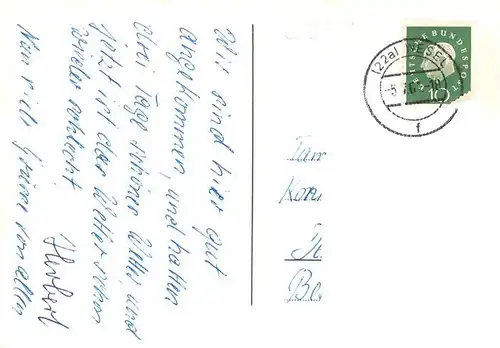 Wir sind hier gut
angekommen, und hatten
zwei Tage schönes Wetter und
jetzt ist das Wetter schon
wieder schlecht
Nun viele Grüsse von allen
Herbert
DEUTSCHE BUNDESPOST
10
(22a) WESEL
f
Kon
Be